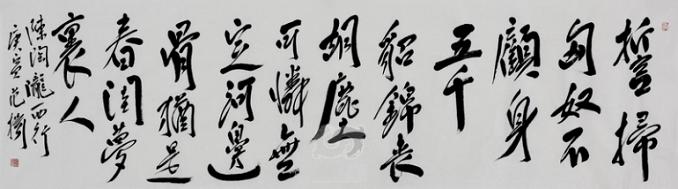 誓掃
匈奴不
顧身
五千
貂錦喪
胡塵
可憐無
定河邊
骨猶是
春閨夢
裏人
陳陶隴西行
庚寅范